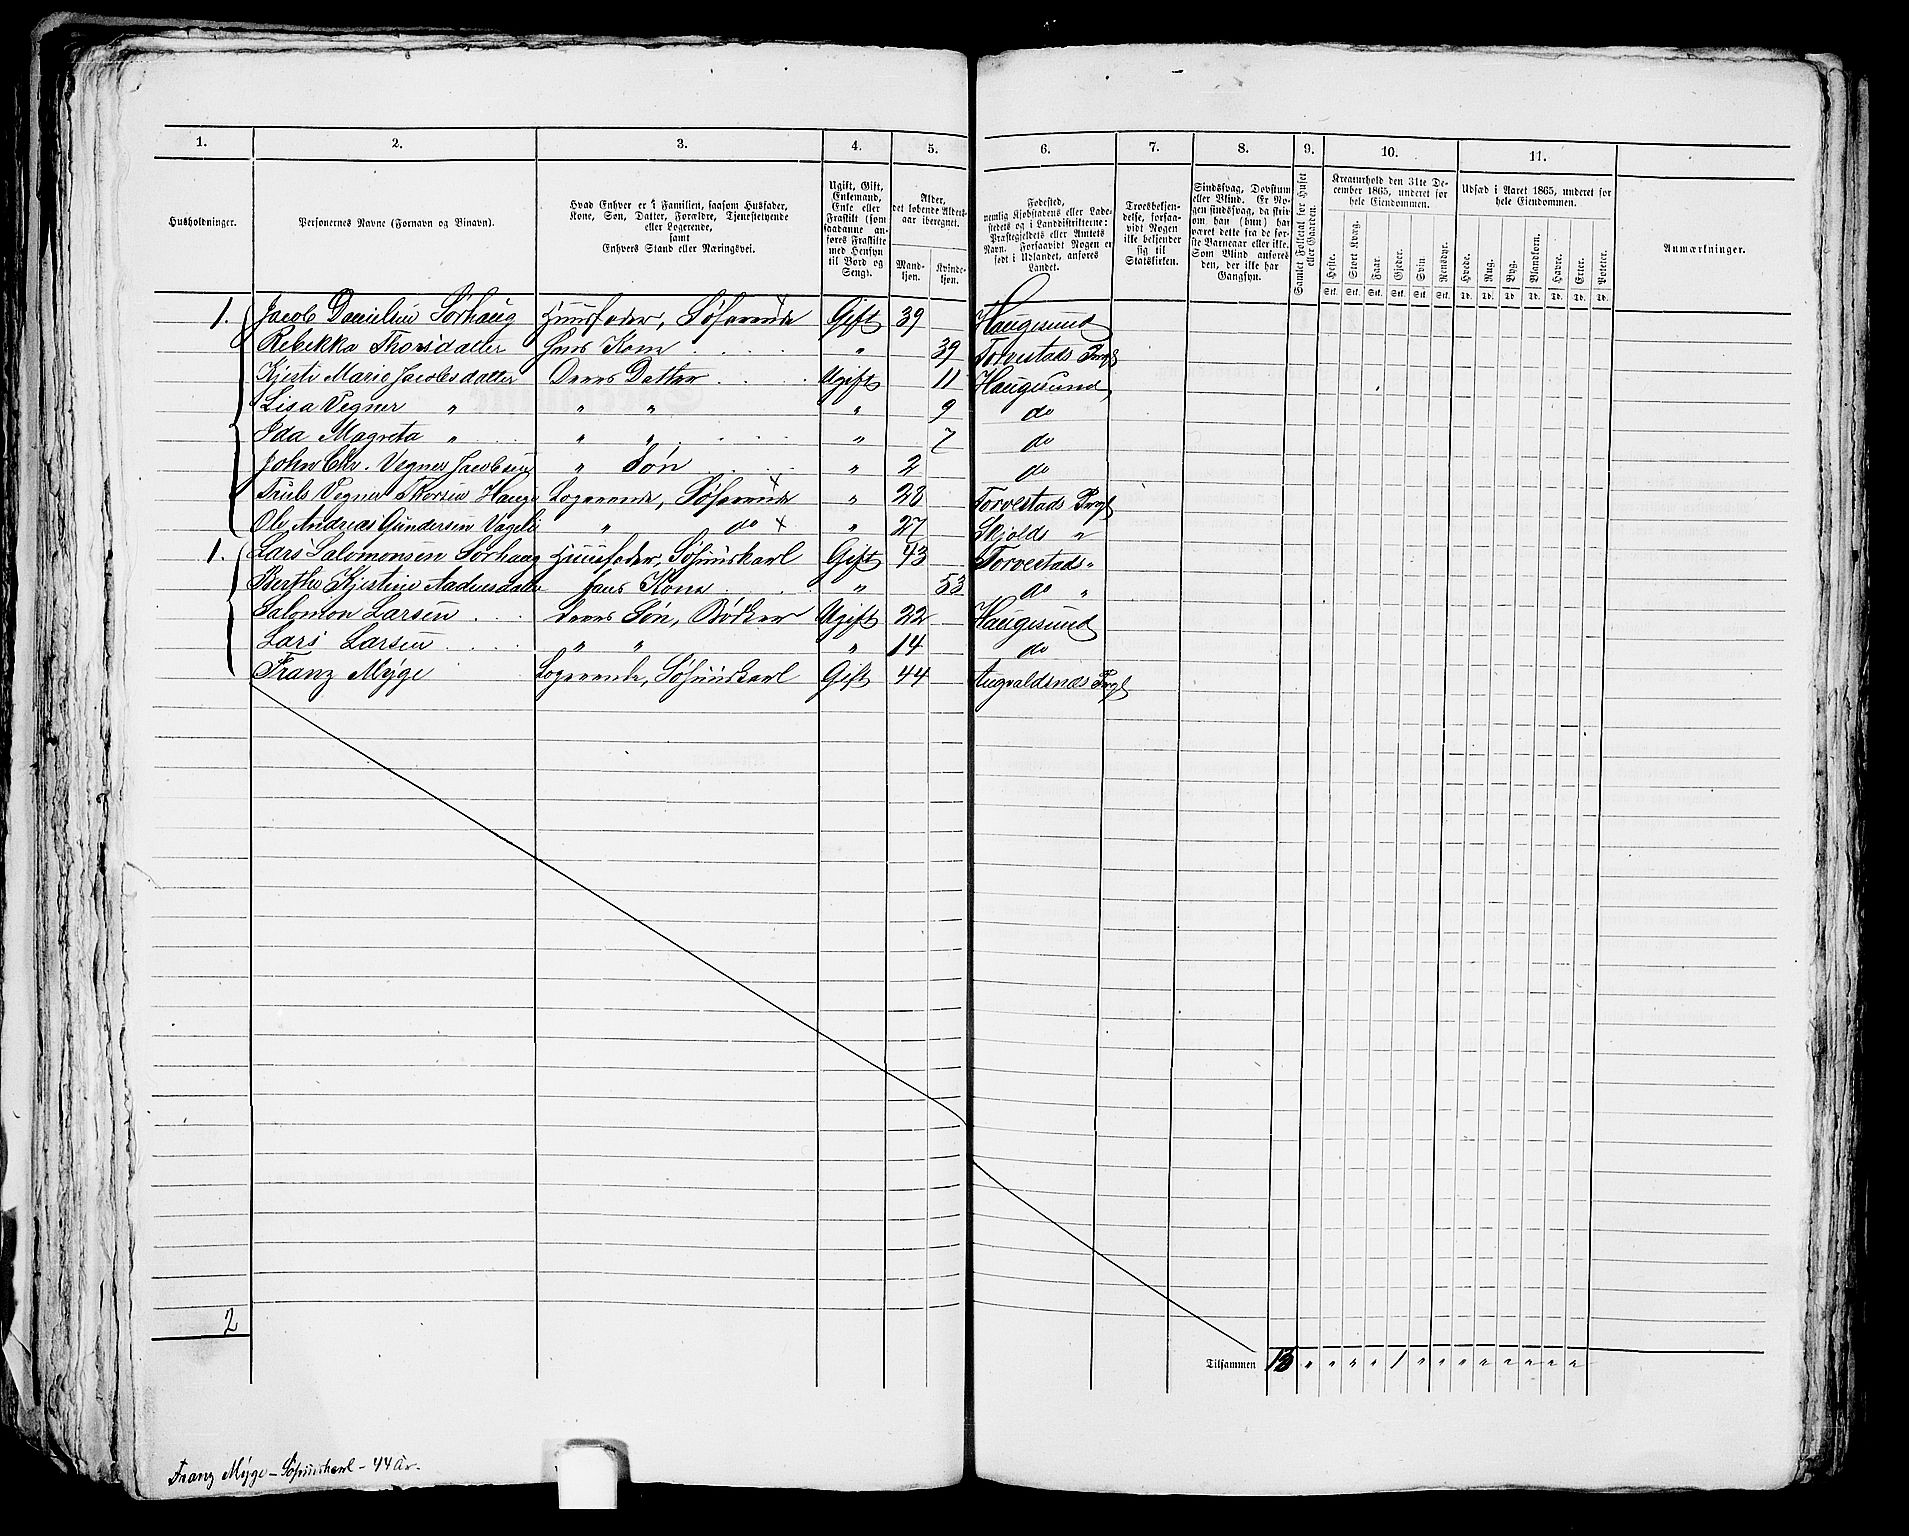 1. 2. 3. 4. 5. 6. 7. 8. 9. 10. 11.
Husholdninger.
Personernes Navne (Fornavn og Binavn).
Hvad Enhver er i Familien, saasom Husfader,
Kone, Søn, Datter, Forældre, Tjenestetyende
eller Logerende,
samt
Enhvers Stand eller Næringsvei.
Ugift, Gift,
Enkemand,
Enke eller
Fraskilt (som
saadanne an-
føres Fraskilte
med Hensyn
til Bord og
Seng).
Alder,
det løbende Alders-
aar iberegnet.
Mand-
kjøn.
Kvinde-
kjøn.
Fødested,
nemlig Kjøbstadens eller Lade-
stedets og i Landdistrikterne:
Præstegjeldets eller Amtets
Navn. Forsaavidt Nogen er
født i Udlandet, anføres
Landet.
Troesbekjen-
delse, forsaa-
vidt Nogen
ikke bekjender
sig til
Statskirken.
Sindssvag, Døvstum
eller Blind. Er No-
gen sindssvag, da skriv
om han (hun) har
været dette fra de før-
ste Barneaar eller ikke.
Som Blind anføres
den, der ikke har
Gangsyn.
Samlet Folketal for Huset
eller Gaarden.
Kreaturhold den 31te De-
cember 1865, underet for
hele Eiendommen.
Heste. Stort Kvæg. Faar. Gjeder. Svin. Rensdyr.
Stk. Stk. Stk. Stk. Stk. Stk.
Udsæd i Aaret 1865, underet for
hele Eiendommen.
Hvede. Rug. Byg. Blandkorn. Havre. Erter. Poteter.
Td. Td. Td. Td. Td. Td. Td.
Anmærkninger.
1. Jacob Danielsen Sørhaug Huusfader, Søfarende Gift 39 Haugesund
Rebekka Thorsdatter Hans Kone " 39 Torvestads Prgl
Kjesti Marie Jacobsdatter Deres Datter Ugift 11 Haugesund
Lisa Vegner " " " " 9 do
Ida Magreta " " " " 7 do
John Chr. Vegner Jacobsen " Søn " 2 do
Truls Vegner Thorsen Hauge Logerende, Søfarende × " 28 Torvestads Prgl
Ole Andreas Gundersen Vageli " do × " 27 Skjolds "
1. Lars Salomonsen Sørhaug Huusfader, Søhuuskarl Gift 43 Torvestads "
Berthe Kjestine Aadnesdatter Hans Kone " 53 do "
Salomon Larsen Deres Søn, Bødker Ugift 22 Haugesund
Lars Larsen " " " 14 do
Franz Myge Logerende, Søhuuskarl Gift 44 Augvaldsnæs Prgl
2
Tilsammen 13 " " " " 1 " " " " " " " "
Franz Myge – Søhuuskarl – 44 År.